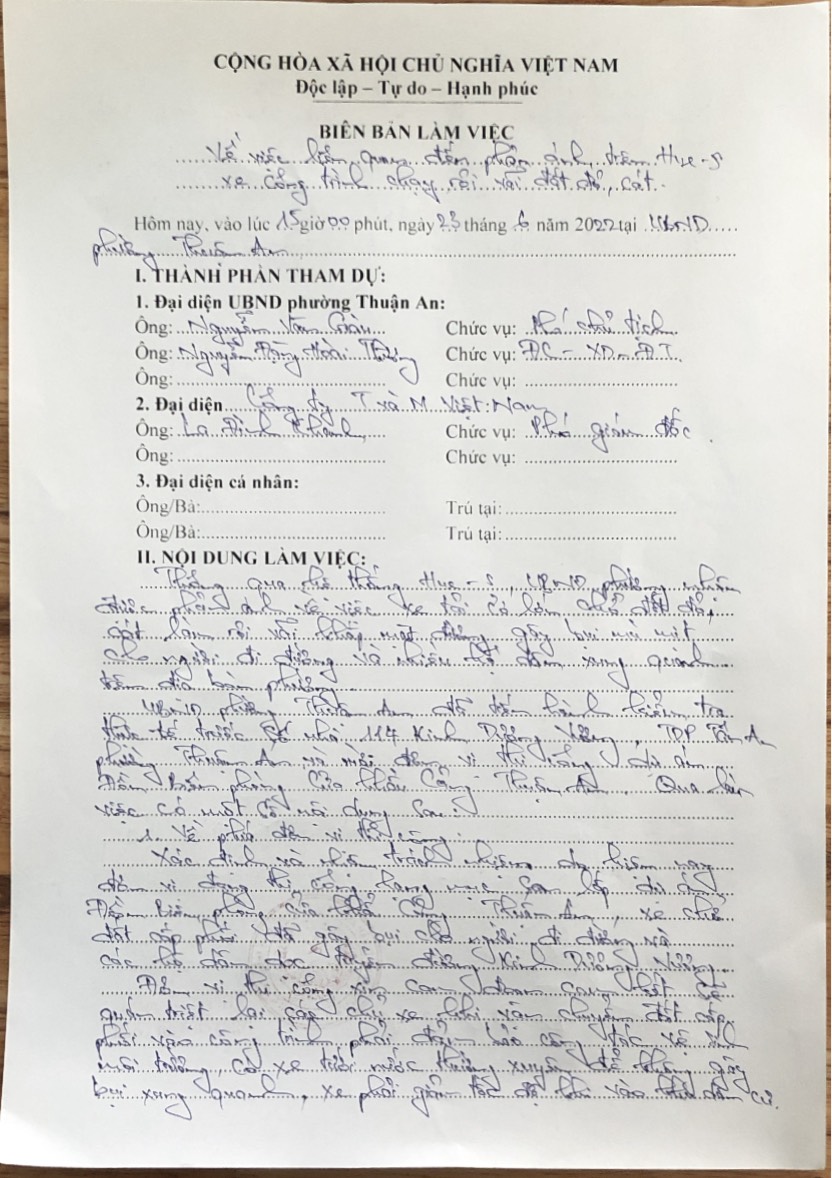 CỘNG HÒA XÃ HỘI CHỦ NGHĨA VIỆT NAM
Độc lập – Tự do – Hạnh phúc
BIÊN BẢN LÀM VIỆC
Về việc liên quan đến phản ánh trên Hue-S
xe công trình chạy rơi vãi đất đá, cát.
Hôm nay, vào lúc 15 giờ 00 phút, ngày 23 tháng 6 năm 2022 tại UBND
phường Thuận An
I. THÀNH PHẦN THAM DỰ:
1. Đại diện UBND phường Thuận An:
Ông: Nguyễn Văn Chức vụ: Phó chủ tịch
Ông: Nguyễn Đặng Hoài Chức vụ: ĐC - XD - ĐT
Ông: Chức vụ:
2. Đại diện Công ty T và M Việt Nam
Ông: La Đình Khánh Chức vụ: Phó giám đốc
Ông: Chức vụ:
3. Đại diện cá nhân:
Ông/Bà: Trú tại:
Ông/Bà: Trú tại:
II. NỘI DUNG LÀM VIỆC:
Thông qua hệ thống Hue-S, UBND phường nhận
được phản ánh về việc xe tải cỡ lớn chở đất đá,
cát làm rơi vãi khắp mặt đường gây bụi mù mịt
cho người đi đường và nhiều hộ dân xung quanh
trên địa bàn phường.
UBND phường Thuận An đã tiến hành kiểm tra
thực tế trước số nhà 114 Kinh Dương Vương, TDP Tân An
phường Thuận An và mời đơn vị thi công dự án
Đồn Biên phòng Cửa khẩu Cảng Thuận An. Qua làm
việc có một số nội dung sau:
1. Về phía đơn vị thi công:
Xác định và nhận trách nhiệm do hiện nay
đơn vị đang thi công hạng mục san lấp dự án
Đồn Biên phòng cửa khẩu Cảng Thuận An, xe chở
đất cấp phối đã gây bụi cho người đi đường và
các hộ dân dọc tuyến đường Kinh Dương Vương.
Đơn vị thi công xin cam đoan cam kết sẽ
quán triệt lại các chủ xe khi vận chuyển đất cấp
phối vào công trình phải đảm bảo công tác vệ sinh
môi trường, có xe tưới nước thường xuyên để không gây
bụi xung quanh, xe phải giảm tốc độ khi vào khu dân cư.